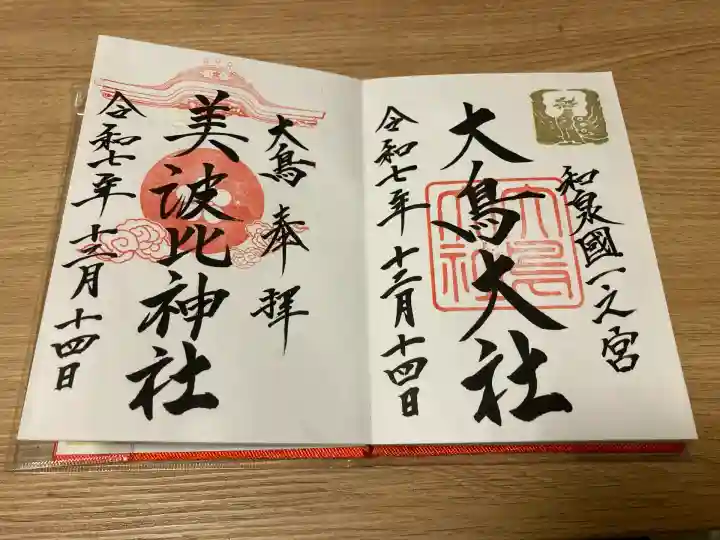 和泉國一之宮
大鳥大社
大鳥大社
令和七年十二月十四日
大鳥奉拝
美波比神社
令和七年十二月十四日